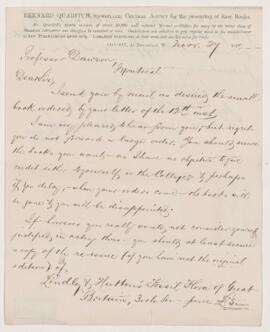 BERNARD QUARITCH, BOOKSELLER, GENERAL AGENCY for the procuring of Rare Books.
15 PICCADILLY, W. Nov 27
Professor Dawson,
Montreal.
Dear Sir,
I send you by mail as desired the small
book ordered by your letter of the 12th inst.
I am very pleased to hear from you, but regret
you do not forward a larger order. You should secure
the books you want, as I have no objection to give
credit either to yourself or the College & perhaps
if you delay, when your orders come the books will
be gone & you will be disappointed.
If however you really would not consider yourself
justified in acting thus you should at least secure
a copy of the re-issue (if you have not the original
edition) of
Lindley & Hutton's Fossil Flora of Great
Britain, 3 vols 8vo price